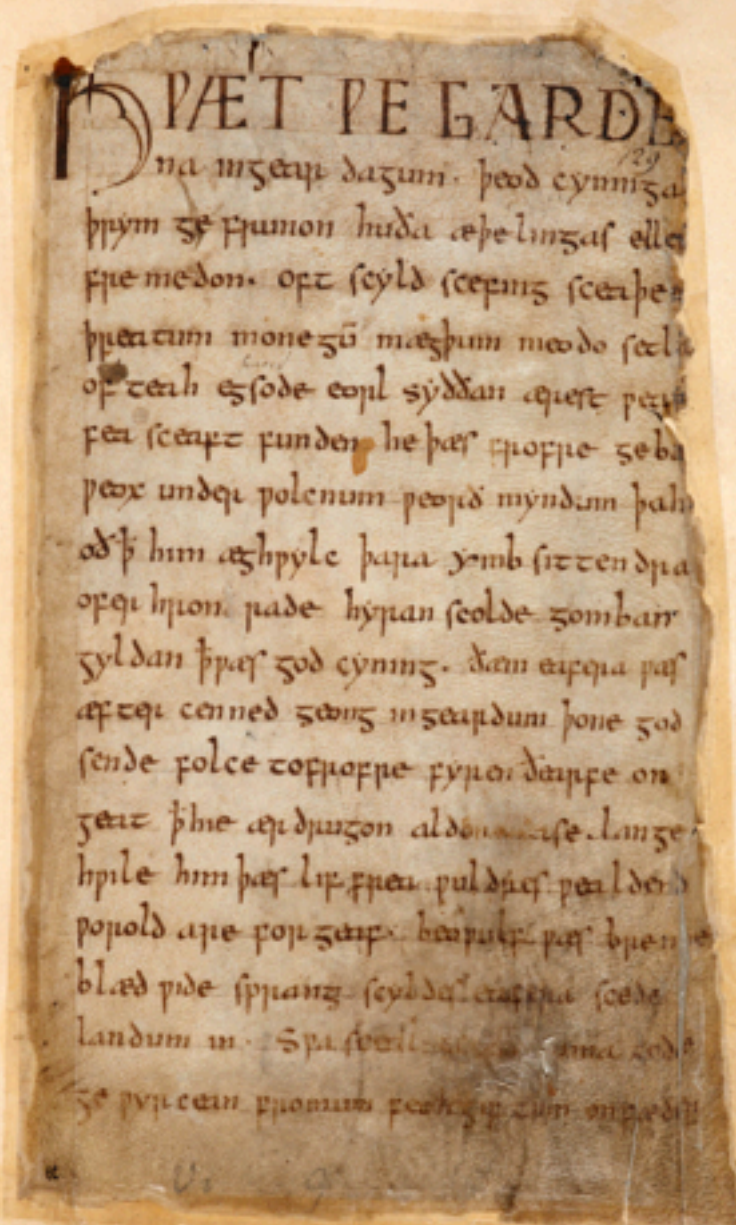 HǷÆT ǷE GARDE
na in gear dagum. þeod cyninga
þrym ge frunon huða æþelingas elle
fre medon. oft scyld scefing sceaþe
þreatum monegū mægþum meodo setla
of teah egsode eorl syððan ærest ƿear
fea sceaft funden he þæs frofre geba
ƿeox under ƿolcnum ƿeorð myndum þah
oð ꝥ him æghƿylc þara ymb sittendra
ofer hron rade hyran scolde gomban
gyldan ꝥ ƿæs god cyning. ðæm eafera ƿæs
æfter cenned geong in geardum þone god
sende folce tofrofre fyren ðearfe on
geat ꝥ hie ær drugon aldor ase. lange
hƿile him þæs lif frea ƿuldres ƿealdend
ƿorold are for geaf. beoƿulf ƿæs breme
blæd ƿide sprang scyldes eafera scede
landum in. Sƿa sceal ma gode
ge ƿyrcean fromum feoh giftum on fæder
129